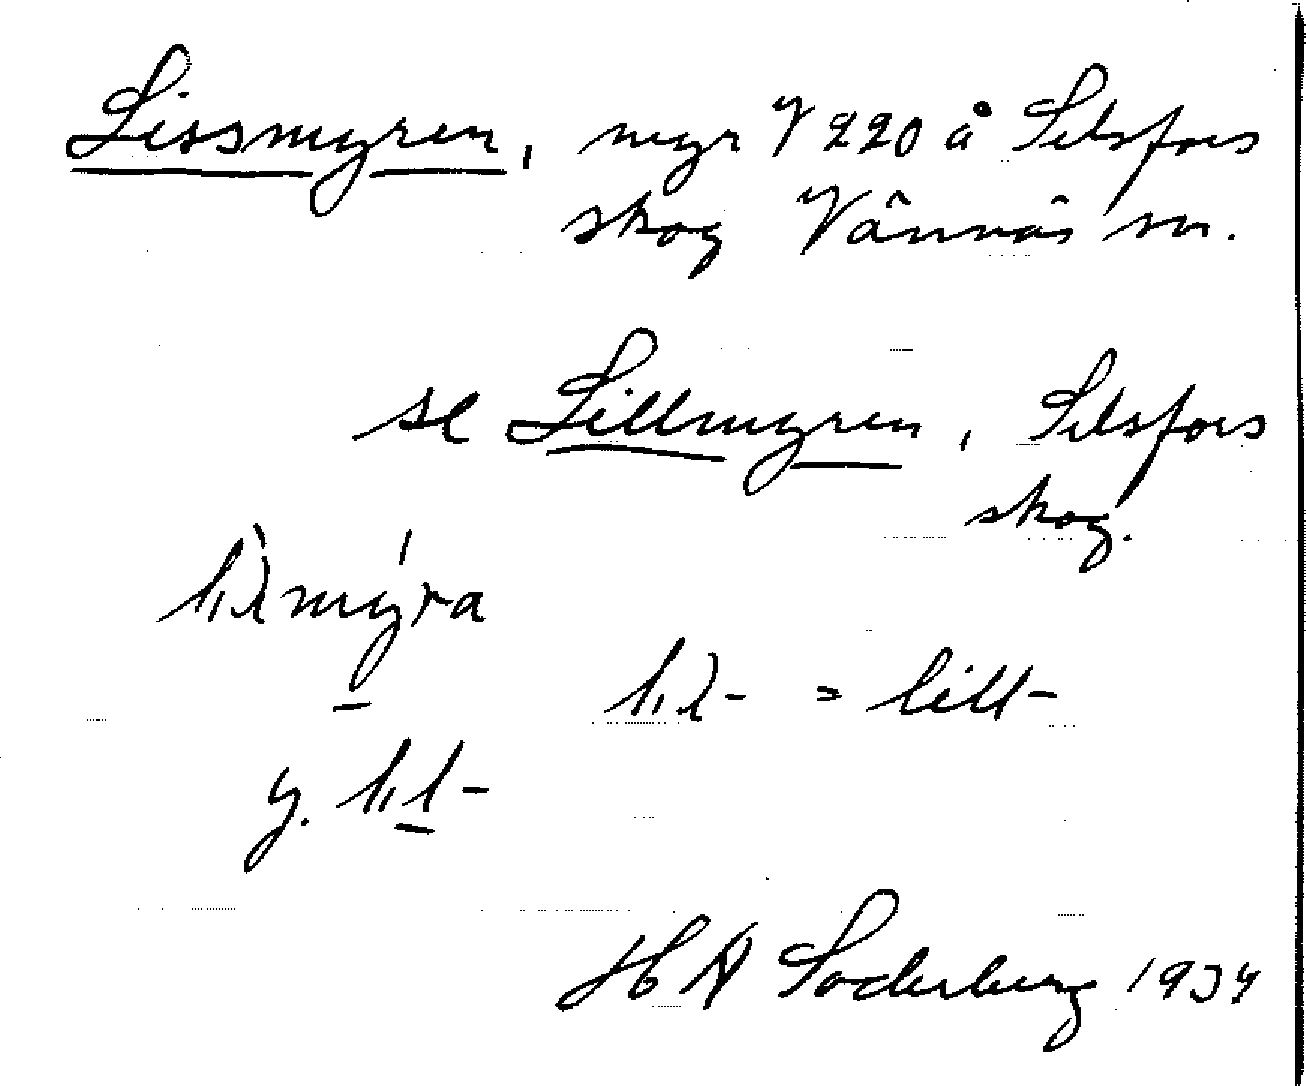 Lissmyren, myr V 220 å Selsfors
skog Vännäs sn.
se Lillmyren, Selsfors
skog.
= lill-
y.
H A Söderberg 1934